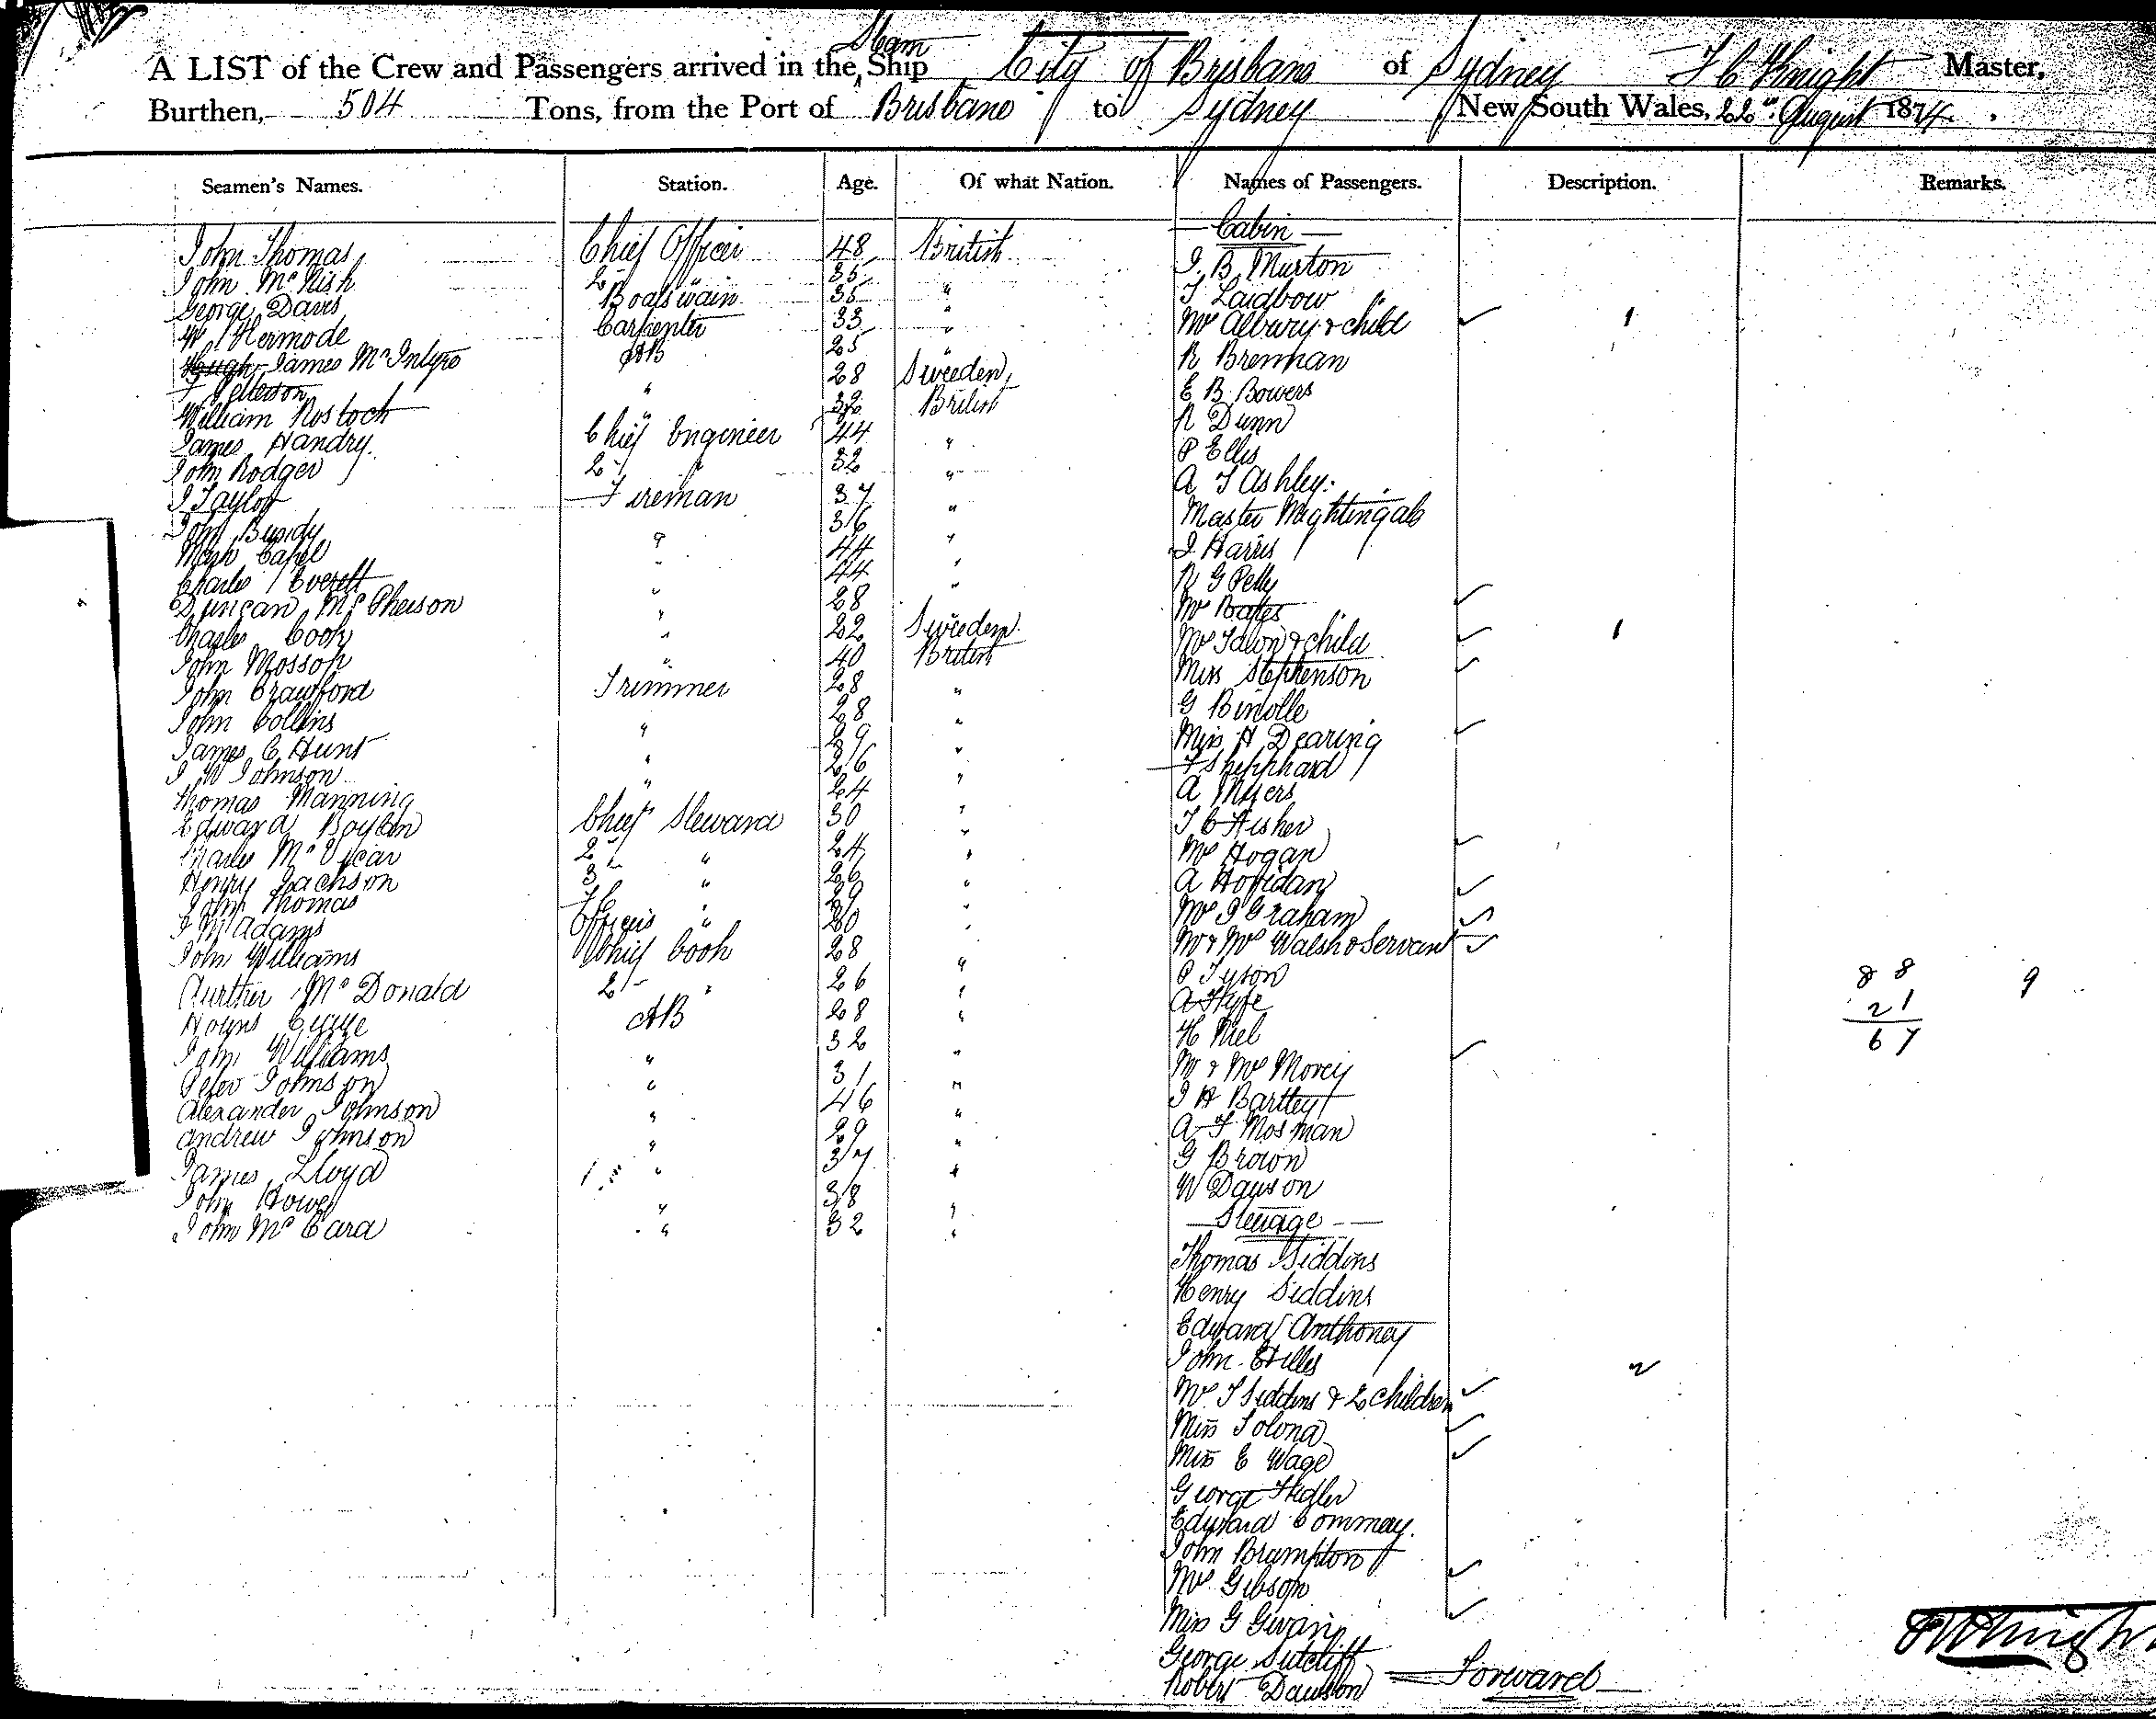 A LIST of the Crew and Passengers arrived in the Steam Ship City of Brisbane of Sydney T C Knight Master,
Burthen, 504 Tons, from the Port of Brisbane to Sydney New South Wales, 22nd August 1874.
Seamen's Names. Station. Age. Of what Nation. Names of Passengers. Description. Remarks.
John Thomas Chief Officer 48 British
John McNish 2 " 35
George Davis Boatswain 35 "
W Kermode Carpenter 33 "
James McIntyre AB 25 "
28 Sweeden
William Rostock " British
James Handry Chief Engineer 44 "
John Rodger 2 " 32 "
J Taylor Fireman 37 "
John Bundy 36 "
Mark Capel " 44 "
Charles Everett " 44 "
Duncan McPherson " 28 "
Charles Cook " 22 Sweeden
John Mossop " 40 British
John Crawford Trimmer 28 "
John Collins 28 "
James C Hunt " 29 "
J W Johnson " 26 "
Thomas Manning " 24 "
Edward Boylan Chief Steward 30 "
Charles McVicar 2 " 24 "
Henry Jackson 3 " 26 "
John Thomas F C " 29 "
J M Adams Officers " 20 "
John Williams Chief Cook 28 "
Aurther McDonald 2 " 26 "
AB 28 "
John Williams " 32 "
Peter Johnson " 31 "
Alexander Johnson " 46 "
Andrew Johnson " 29 "
James Lloyd " 37 "
John Howe " 38 "
John McCara " 32 "
Cabin
J. B. Murton
T Laidbow
Mrs Albury & child 1
R Brennan
E B Bowers
R Dunn
P Ellis
A T Ashley
Master Nightingale
J Harris
R G Pelly
Mrs Bates
Mrs & child 1
Miss Stephenson
G Binolle
Miss H Dearing
F Shepphard
A Myers
T C Fisher
Mrs Hogan
A
Mrs J Graham
Mr & Mrs Walsh & Servant
P Tyson
A Fyfe
H Niel
Mr & Mrs Morey
J H Bartley
A F Mosman
G Brown
W Dawson
88 9
21
67
Steerage
Thomas Siddins
Henry Siddins
Edward Anthoney
John
Mrs T Siddins & 2 children 2
Miss Solona
Miss E Wage
George
Edward Commay
John Brampton
Mrs Gibson
Miss G Girvan
George Sutcliff
Robert Dawson Forward